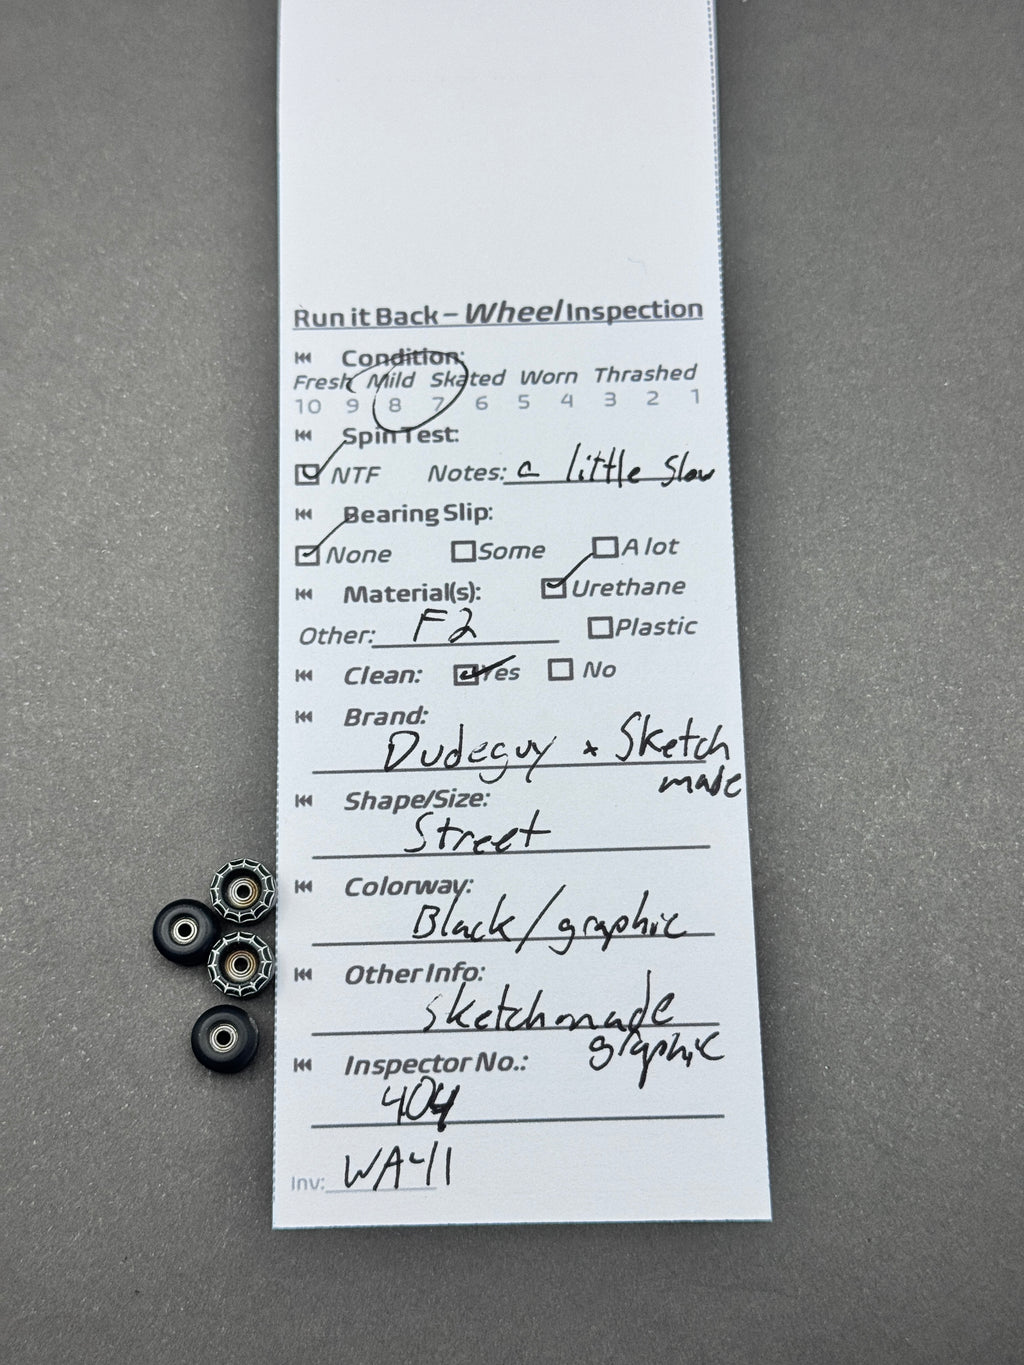 Run it Back – Wheel Inspection
Condition:
Fresh Mild Skated Worn Thrashed
10 9 8 7 6 5 4 3 2 1
Spin Test:
NTF Notes: a little slow
Bearing Slip:
None Some A lot
Material(s): Urethane
Other: F2 Plastic
Clean: Yes No
Brand:
Dudeguy x Sketch
made
Shape/Size:
Street
Colorway:
Black/graphic
Other Info:
sketchmade
graphic
Inspector No.:
404
Inv: WA41